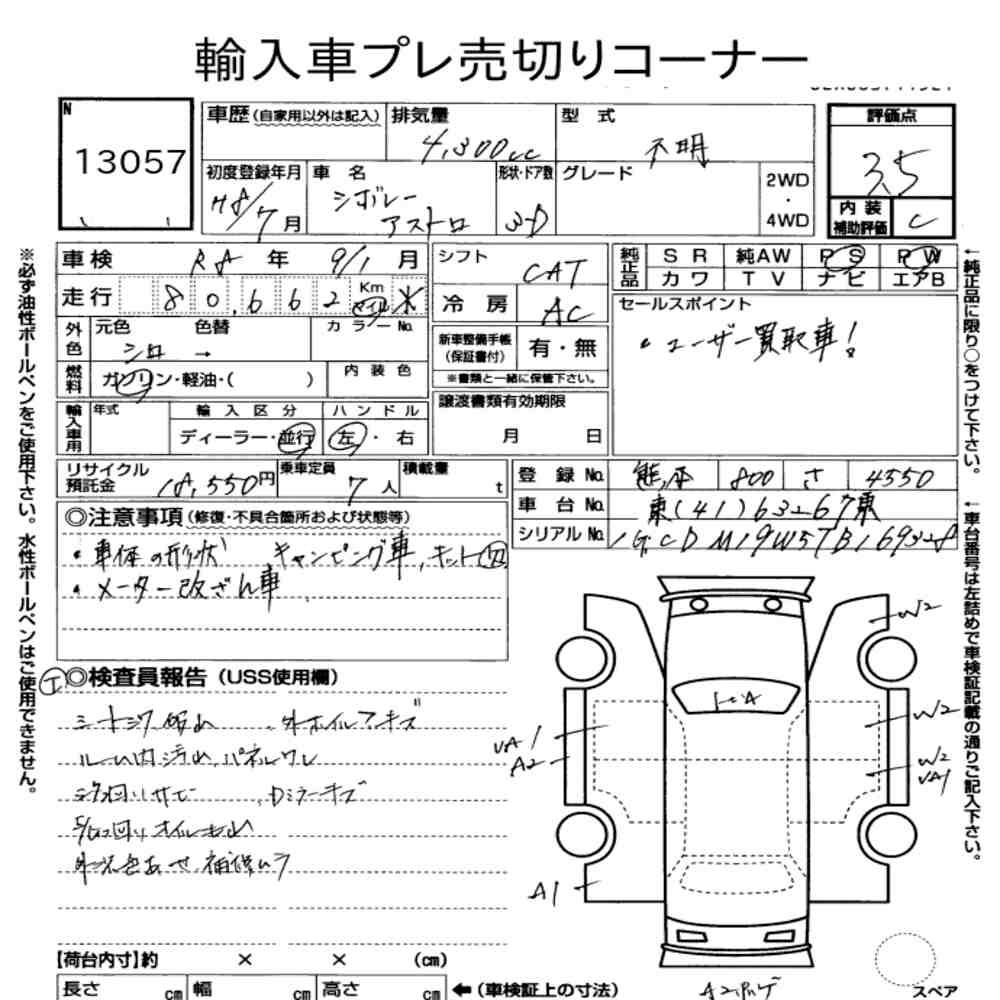 輸入車プレ売切りコーナー
N
13057
車歴 (自家用以外は記入) 排気量 4,300cc 型 式 不明
初度登録年月 H8/7月 車 名 シボレー アストロ 形状・ドア数 3D グレード 2WD ・ 4WD
評価点 3.5
内装補助評価 C
車検 R8年 9/1月 シフト CAT
走行 80,662 Km マイル 冷 房 AC
外色 元色 シロ 色替 → カラーNo.
燃料 ガソリン・軽油・( ) 内装色
新車整備手帳 (保証書付) 有・無
※書類と一緒に保管下さい。
輸入車用 年式 輸入区分 ディーラー・並行 ハンドル 左・右
譲渡書類有効期限 月 日
純正品 SR 純AW PS PW
カワ TV ナビ エアB
セールスポイント
・ユーザー買取車!
リサイクル預託金 18,550円 乗車定員 7人 積載量 t
登録No. 熊本 800 さ 4550
車台No. 東(41)63267東
シリアルNo. 1GCDM19W5TB169328
◎注意事項 (修復・不具合箇所および状態等)
・車体の形状 キャンピング車,キット
・メーター改ざん車
◎検査員報告 (USS使用欄)
外ホイルアーキズ
ルーム内汚れ パネルワレ
下回りサビ Dミラーキズ
下回り オイルもれ
外装色あせ 補修ムラ
W2
W2
W2
VA1
VA1
A2
A1
【荷台内寸】約 × × (cm)
長さ cm 幅 cm 高さ cm ←(車検証上の寸法)
スペア
※必ず油性ボールペンをご使用下さい。水性ボールペンはご使用できません。
←純正品に限り○をつけて下さい。
←車台番号は左詰めで車検証記載の通りご記入下さい。